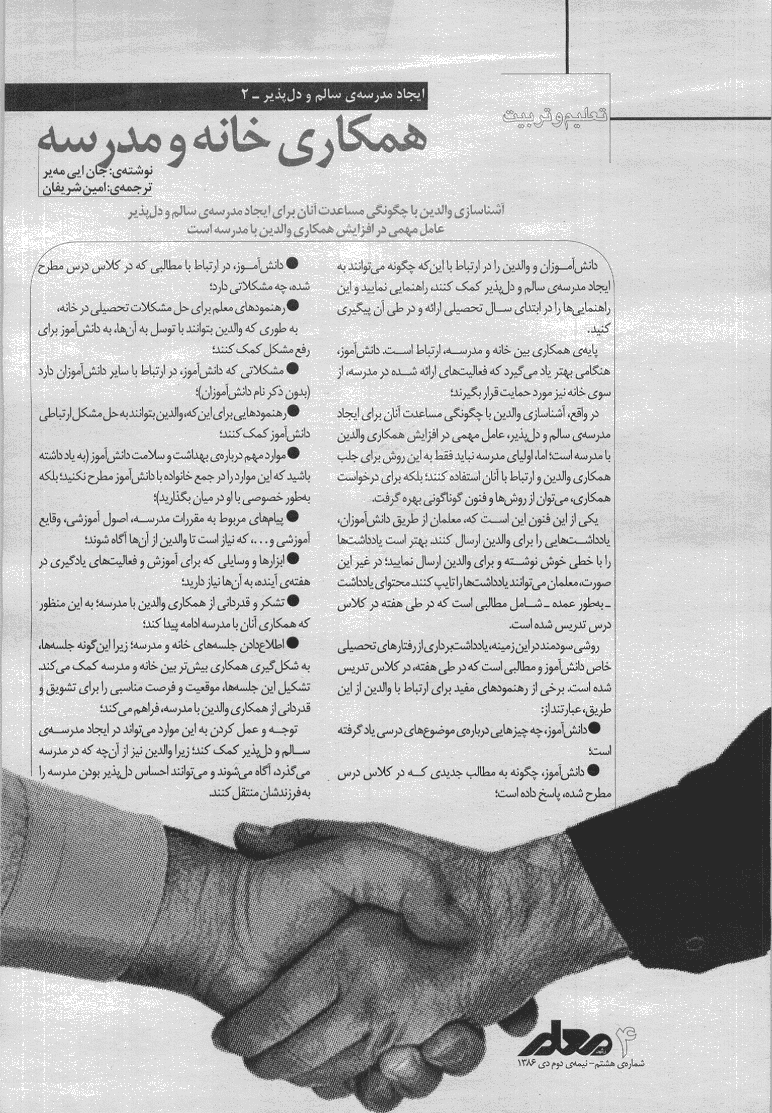 ایجاد مدرسه‌ی سالم و دل‌پذیر ـ ۲
تعلیم و تربیت
همکاری خانه و مدرسه
نوشته‌ی: جان ایی مه‌یر
ترجمه‌ی: امین شریفان
آشناسازی والدین با چگونگی مساعدت آنان برای ایجاد مدرسه‌ی سالم و دل‌پذیر
عامل مهمی در افزایش همکاری والدین با مدرسه است
دانش‌آموزان و والدین را در ارتباط با این‌که چگونه می‌توانند به
ایجاد مدرسه‌ی سالم و دل‌پذیر کمک کنند، راهنمایی نمایید و این
راهنمایی‌ها را در ابتدای سال تحصیلی ارائه و در طی آن پیگیری
کنید.
پایه‌ی همکاری بین خانه و مدرسه، ارتباط است. دانش‌آموز،
هنگامی بهتر یاد می‌گیرد که فعالیت‌های ارائه شده در مدرسه، از
سوی خانه نیز مورد حمایت قرار بگیرند؛
در واقع، آشناسازی والدین با چگونگی مساعدت آنان برای ایجاد
مدرسه‌ی سالم و دل‌پذیر، عامل مهمی در افزایش همکاری والدین
با مدرسه است؛ اما، اولیای مدرسه نباید فقط به این روش برای جلب
همکاری والدین و ارتباط با آنان استفاده کنند؛ بلکه برای درخواست
همکاری، می‌توان از روش‌ها و فنون گوناگونی بهره گرفت.
یکی از این فنون این است که، معلمان از طریق دانش‌آموزان،
یادداشت‌هایی را برای والدین ارسال کنند. بهتر است یادداشت‌ها
را با خطی خوش نوشته و برای والدین ارسال نمایید؛ در غیر این
صورت، معلمان می‌توانند یادداشت‌ها را تایپ کنند. محتوای یادداشت
ـ به‌طور عمده ـ شامل مطالبی است که در طی هفته در کلاس
درس تدریس شده است.
روشی سودمند در این زمینه، یادداشت‌برداری از رفتارهای تحصیلی
خاص دانش‌آموز و مطالبی است که در طی هفته، در کلاس تدریس
شده است. برخی از رهنمودهای مفید برای ارتباط با والدین از این
طریق، عبارتند از:
● دانش‌آموز، چه چیزهایی درباره‌ی موضوع‌های درسی یاد گرفته
است؛
● دانش‌آموز، چگونه به مطالب جدیدی که در کلاس درس
مطرح شده، پاسخ داده است؛
● دانش‌آموز، در ارتباط با مطالبی که در کلاس درس مطرح
شده، چه مشکلاتی دارد؛
● رهنمودهای معلم برای حل مشکلات تحصیلی در خانه،
به طوری که والدین بتوانند با توسل به آن‌ها، به دانش‌آموز برای
رفع مشکل کمک کنند؛
● مشکلاتی که دانش‌آموز، در ارتباط با سایر دانش‌آموزان دارد
(بدون ذکر نام دانش‌آموزان)؛
● رهنمودهایی برای این که، والدین بتوانند به حل مشکل ارتباطی
دانش‌آموز کمک کنند؛
● موارد مهم درباره‌ی بهداشت و سلامت دانش‌آموز (به یاد داشته
باشید که این موارد را در جمع خانواده با دانش‌آموز مطرح نکنید؛ بلکه
به‌طور خصوصی با او در میان بگذارید)؛
● پیام‌های مربوط به مقررات مدرسه، اصول آموزشی، وقایع
آموزشی و...، که نیاز است تا والدین از آن‌ها آگاه شوند؛
● ابزارها و وسایلی که برای آموزش و فعالیت‌های یادگیری در
هفته‌ی آینده، به آن‌ها نیاز دارید؛
● تشکر و قدردانی از همکاری والدین با مدرسه؛ به این منظور
که همکاری آنان با مدرسه ادامه پیدا کند؛
● اطلاع‌دادن جلسه‌های خانه و مدرسه؛ زیرا این‌گونه جلسه‌ها،
به شکل‌گیری همکاری بیش‌تر بین خانه و مدرسه کمک می‌کند.
تشکیل این جلسه‌ها، موقعیت و فرصت مناسبی را برای تشویق و
قدردانی از همکاری والدین با مدرسه، فراهم می‌کند؛
توجه و عمل کردن به این موارد می‌تواند در ایجاد مدرسه‌ی
سالم و دل‌پذیر کمک کند؛ زیرا والدین نیز از آن‌چه که در مدرسه
می‌گذرد، آگاه می‌شوند و می‌توانند احساس دل‌پذیر بودن مدرسه را
به فرزندشان منتقل کنند.
۴ معلم
شماره‌ی هشتم - نیمه‌ی دوم دی ۱۳۸۶